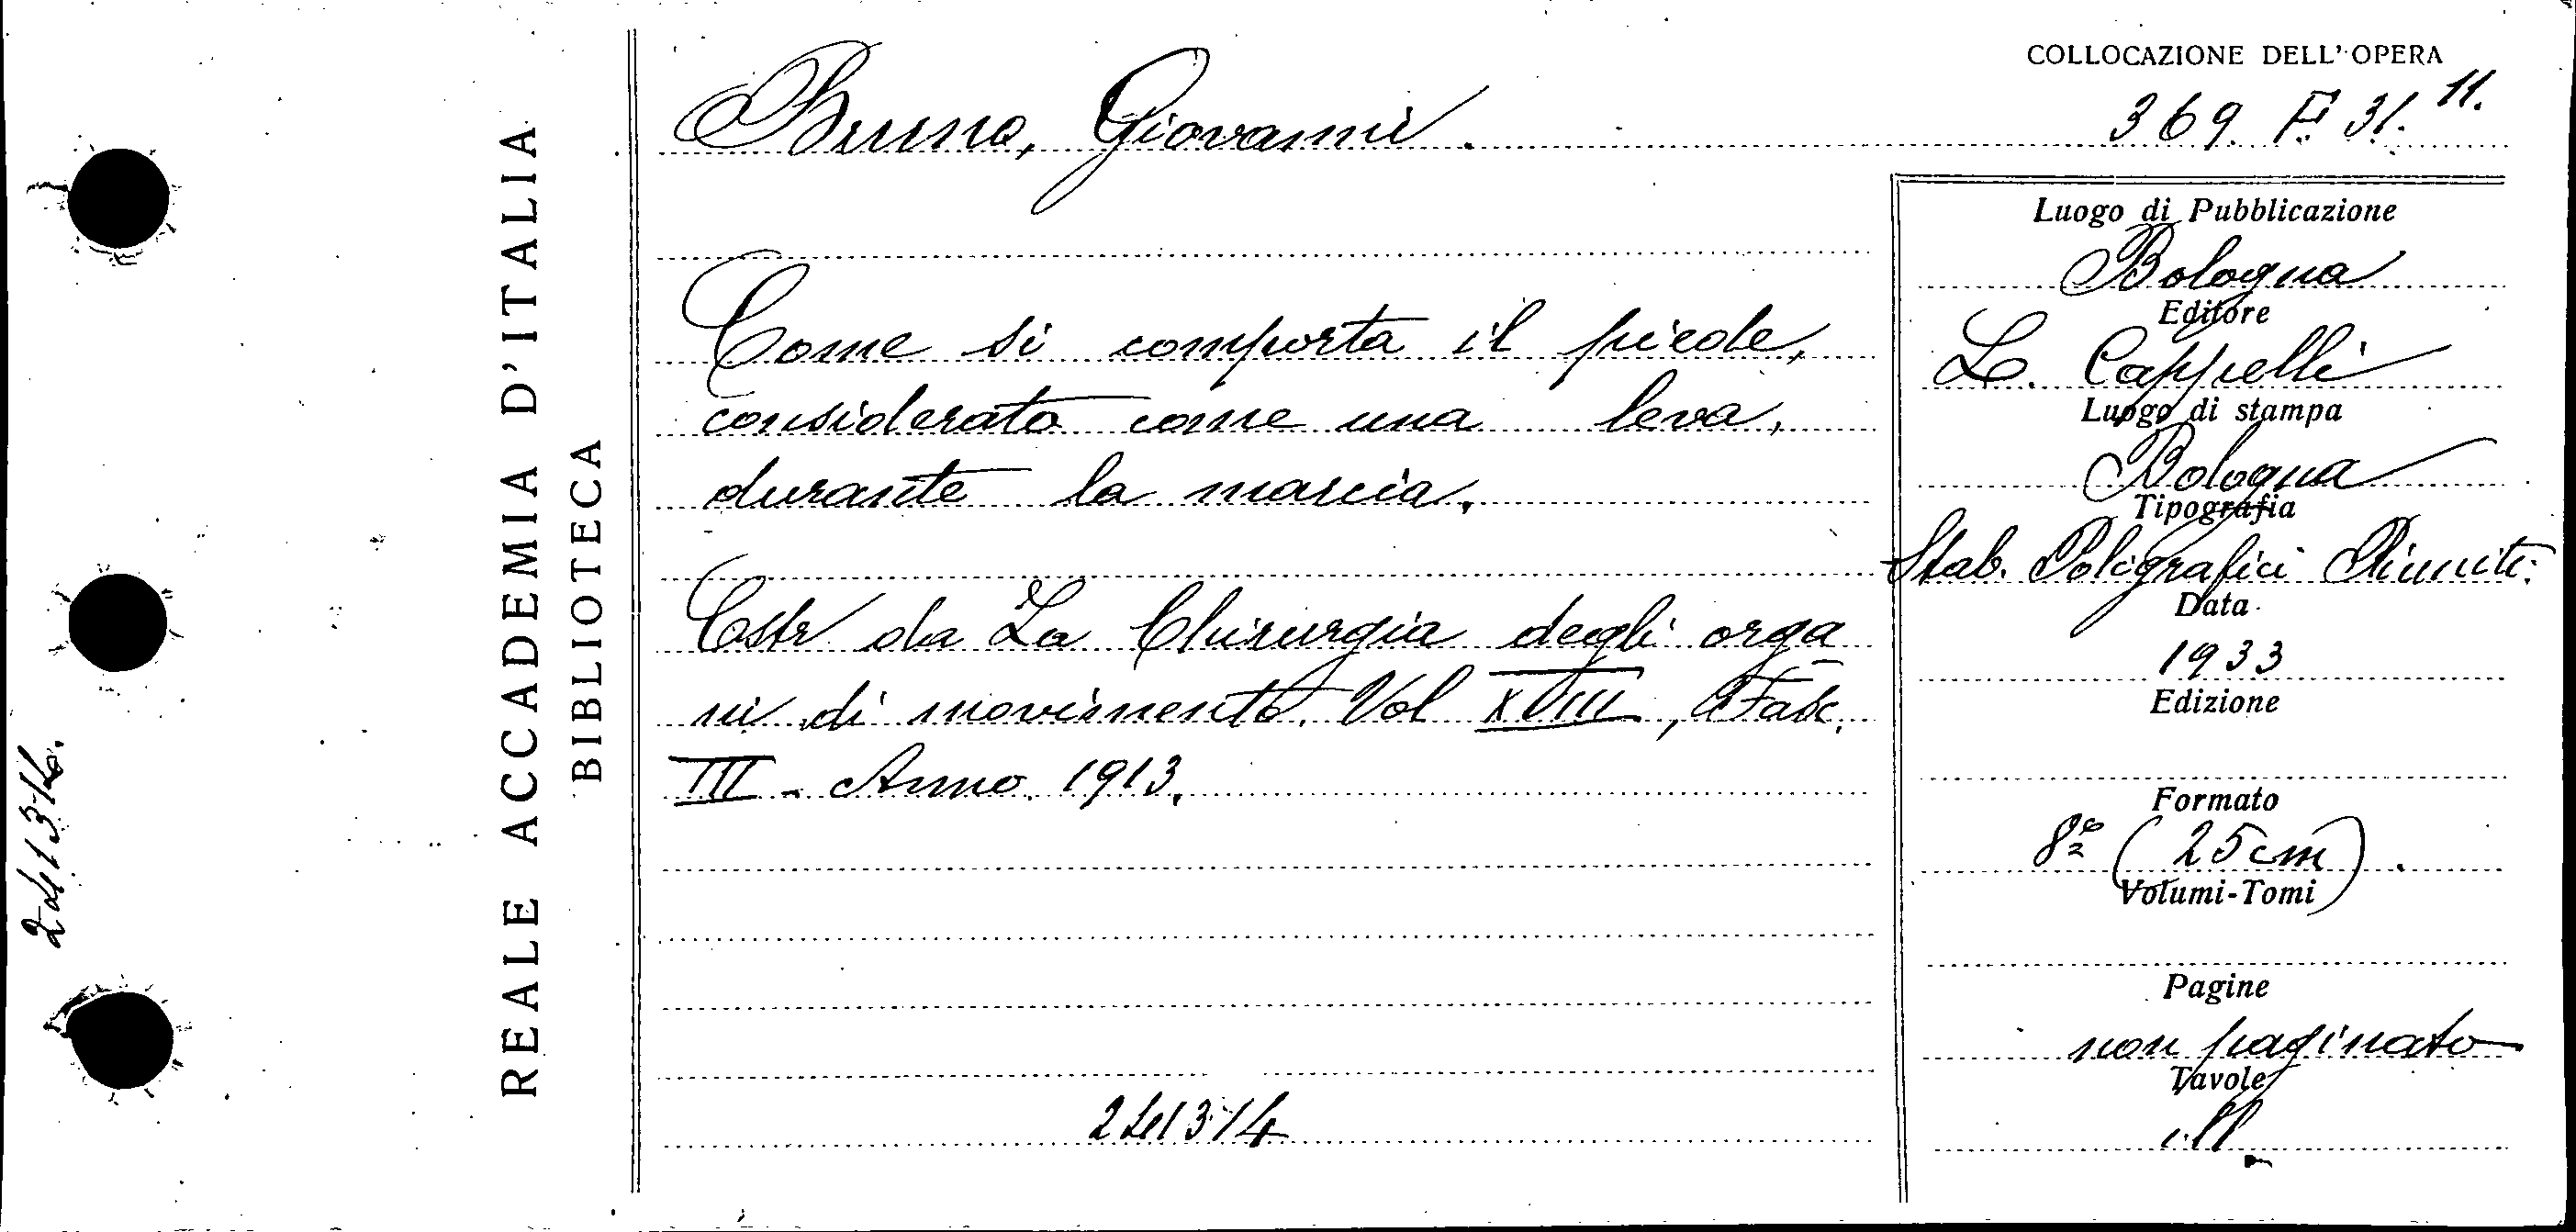 COLLOCAZIONE DELL'OPERA
369. F. 31. 11.
Bruno, Giovanni.
Come si comporta il piede,
considerato come una leva,
durante la marcia.
Estr da La Chirurgia degli orga
ni di movimento. Vol XVIII, Fasc.
III - Anno 1913.
241314
Luogo di Pubblicazione
Bologna
Editore
L. Cappelli
Luogo di stampa
Bologna
Tipografia
Stab. Poligrafici Riuniti.
Data
1933
Edizione
Formato
8º (25cm).
Volumi-Tomi
Pagine
non paginato
Tavole
ill
REALE ACCADEMIA D'ITALIA
BIBLIOTECA
241314.